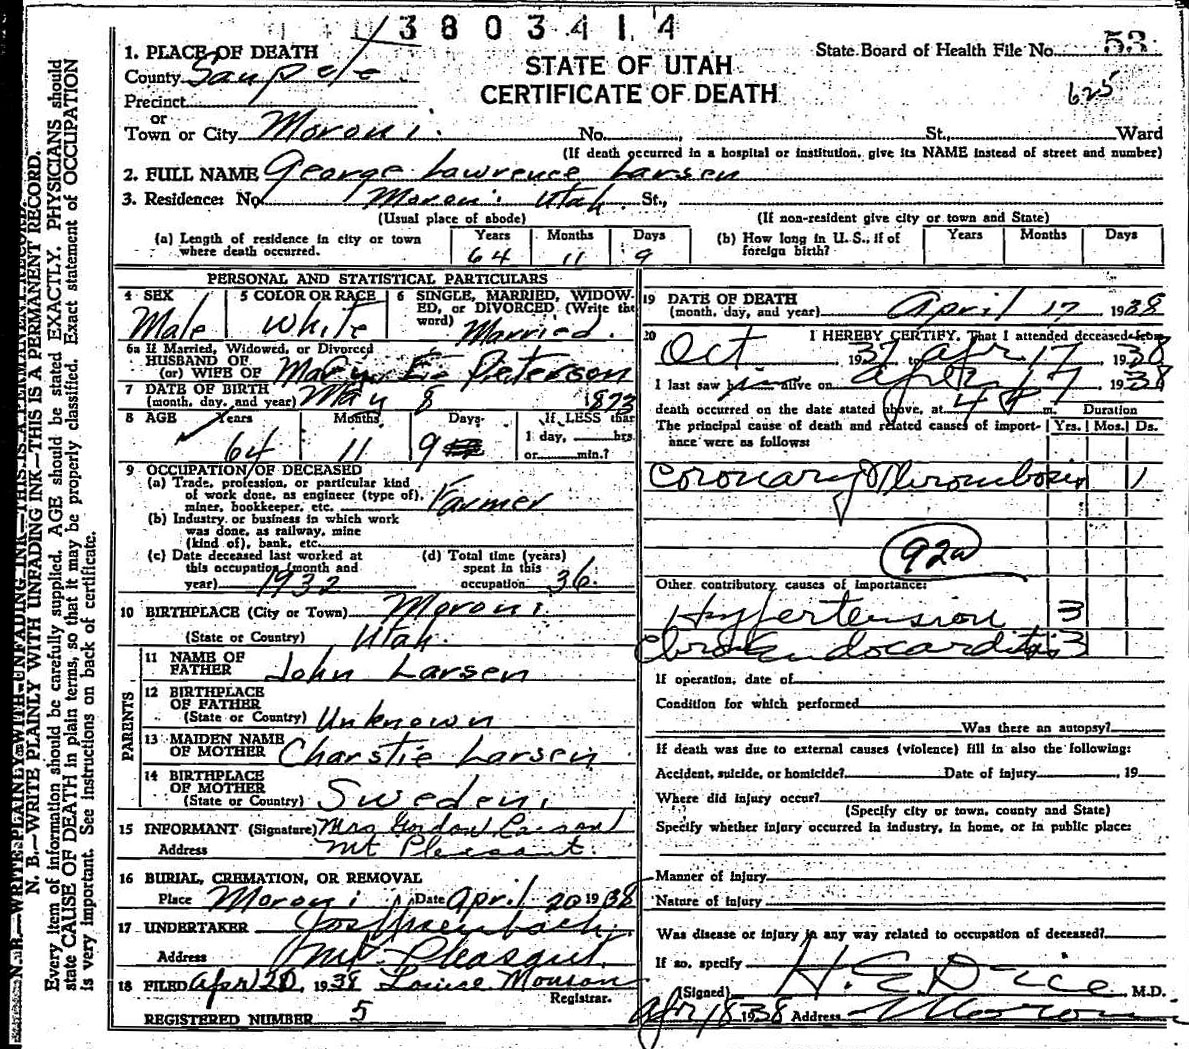 3 8 0 3 4 1 4
1. PLACE OF DEATH
County Sanpete
Precinct
or
Town or City Moroni No. St., Ward
(If death occurred in a hospital or institution, give its NAME instead of street and number)
State Board of Health File No. 53
625
STATE OF UTAH
CERTIFICATE OF DEATH
2. FULL NAME George Lawrence Larsen
3. Residence: No. Moroni Utah. St.,
(Usual place of abode) (If non-resident give city or town and State)
(a) Length of residence in city or town where death occurred. Years 64 Months 11 Days 9
(b) How long in U. S., if of foreign birth? Years Months Days
PERSONAL AND STATISTICAL PARTICULARS
4 SEX Male
5 COLOR OR RACE White
6 SINGLE, MARRIED, WIDOWED, or DIVORCED (Write the word) Married.
6a If Married, Widowed, or Divorced
HUSBAND OF
(or) WIFE OF Mary E. Peterson
7 DATE OF BIRTH
(month, day, and year) May 8 1873
8 AGE Years 64 Months 11 Days 9 If LESS than 1 day, hrs. or min.?
9 OCCUPATION OF DECEASED
(a) Trade, profession, or particular kind of work done, as engineer (type of), miner, bookkeeper, etc. Farmer
(b) Industry or business in which work was done, as railway, mine (kind of), bank, etc.
(c) Date deceased last worked at this occupation (month and year) 1932
(d) Total time (years) spent in this occupation 36.
10 BIRTHPLACE (City or Town) Moroni.
(State or Country) Utah.
PARENTS
11 NAME OF FATHER John Larsen
12 BIRTHPLACE OF FATHER
(State or Country) Unknown
13 MAIDEN NAME OF MOTHER Charstie Larsen
14 BIRTHPLACE OF MOTHER
(State or Country) Sweden.
15 INFORMANT (Signature) Mrs Gordon Larson
Address Mt Pleasant.
16 BURIAL, CREMATION, OR REMOVAL
Place Moroni Date April 20 1938
17 UNDERTAKER Jos
Address Mt. Pleasant.
18 FILED Apr 20, 1938 Louise Morrison
Registrar.
REGISTERED NUMBER 5
19 DATE OF DEATH
(month, day, and year) April 17 1938
20 I HEREBY CERTIFY, That I attended deceased from
Oct 1937 Apr 17 1938
I last saw him alive on April 17 1938
death occurred on the date stated above, at m. Duration
The principal cause of death and related causes of importance were as follows: Yrs. Mos. Ds.
Coronary Thrombosis 1
92a
Other contributory causes of importance:
Hypertension 3
Chronic Endocarditis 3
If operation, date of
Condition for which performed
Was there an autopsy?
If death was due to external causes (violence) fill in also the following:
Accident, suicide, or homicide? Date of injury 19
Where did injury occur?
(Specify city or town, county and State)
Specify whether injury occurred in industry, in home, or in public place:
Manner of Injury
Nature of Injury
Was disease or injury in any way related to occupation of deceased?
If so, specify
(Signed) H. E. Dice M.D.
Apr 18 1938 Address Moroni
N. B.—WRITE PLAINLY WITH UNFADING INK—THIS IS A PERMANENT RECORD.
Every item of information should be carefully supplied. AGE should be stated EXACTLY. PHYSICIANS should
state CAUSE OF DEATH in plain terms, so that it may be properly classified. Exact statement of OCCUPATION
is very important. See instructions on back of certificate.